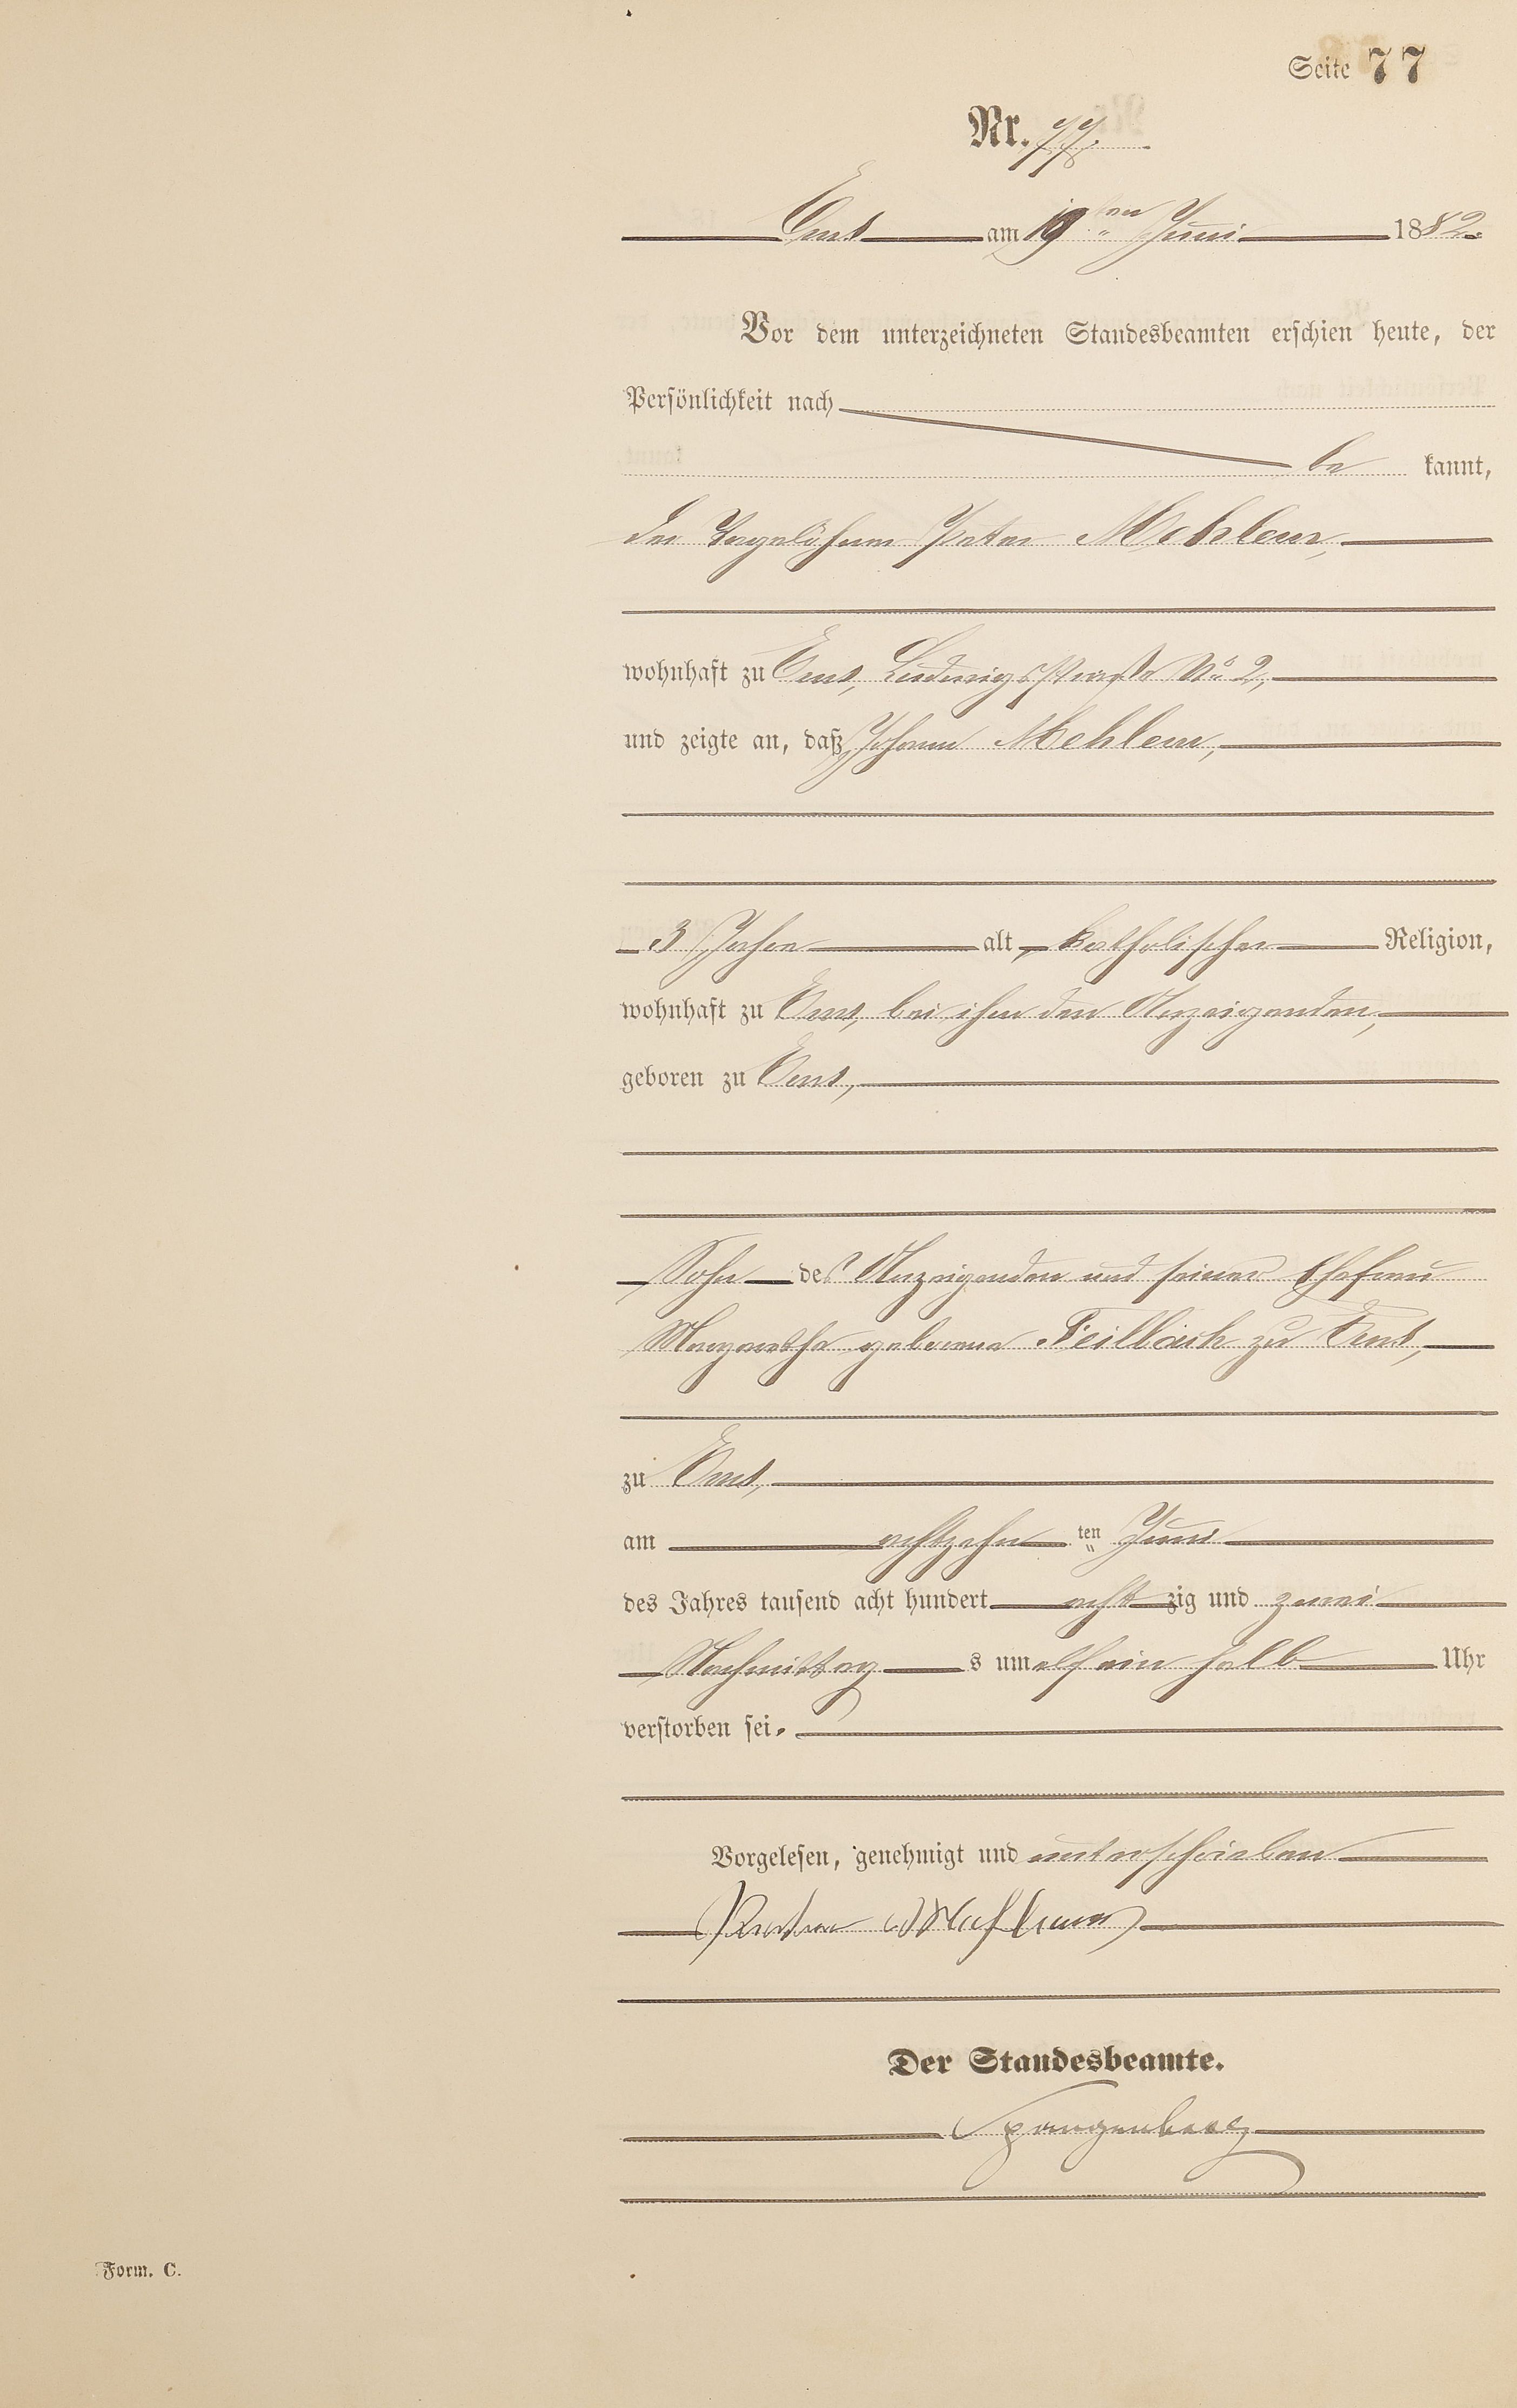 Seite 77
Nr. 77.
Ems am 19ten Juni 1882.
Vor dem unterzeichneten Standesbeamten erschien heute, der
Persönlichkeit nach
be kannt,
der Tagelöhner Peter Mehlem,
wohnhaft zu Ems, Ludwigsstraße No 2,
und zeigte an, daß Johann Mehlem,
3 Jahre alt, katholischer Religion,
wohnhaft zu Ems, bei ihm dem Anzeigenden,
geboren zu Ems,
Sohn des Anzeigenden und seiner Ehefrau
Margaretha geborene Feilbach zu Ems,
zu Ems,
am achtzehn ten Juni
des Jahres tausend acht hundert acht zig und zwei
Nachmittag s um elf ein halb Uhr
verstorben sei.
Vorgelesen, genehmigt und unterschrieben
Peter Mehlem
Der Standesbeamte.
Spangenberg
Form. C.